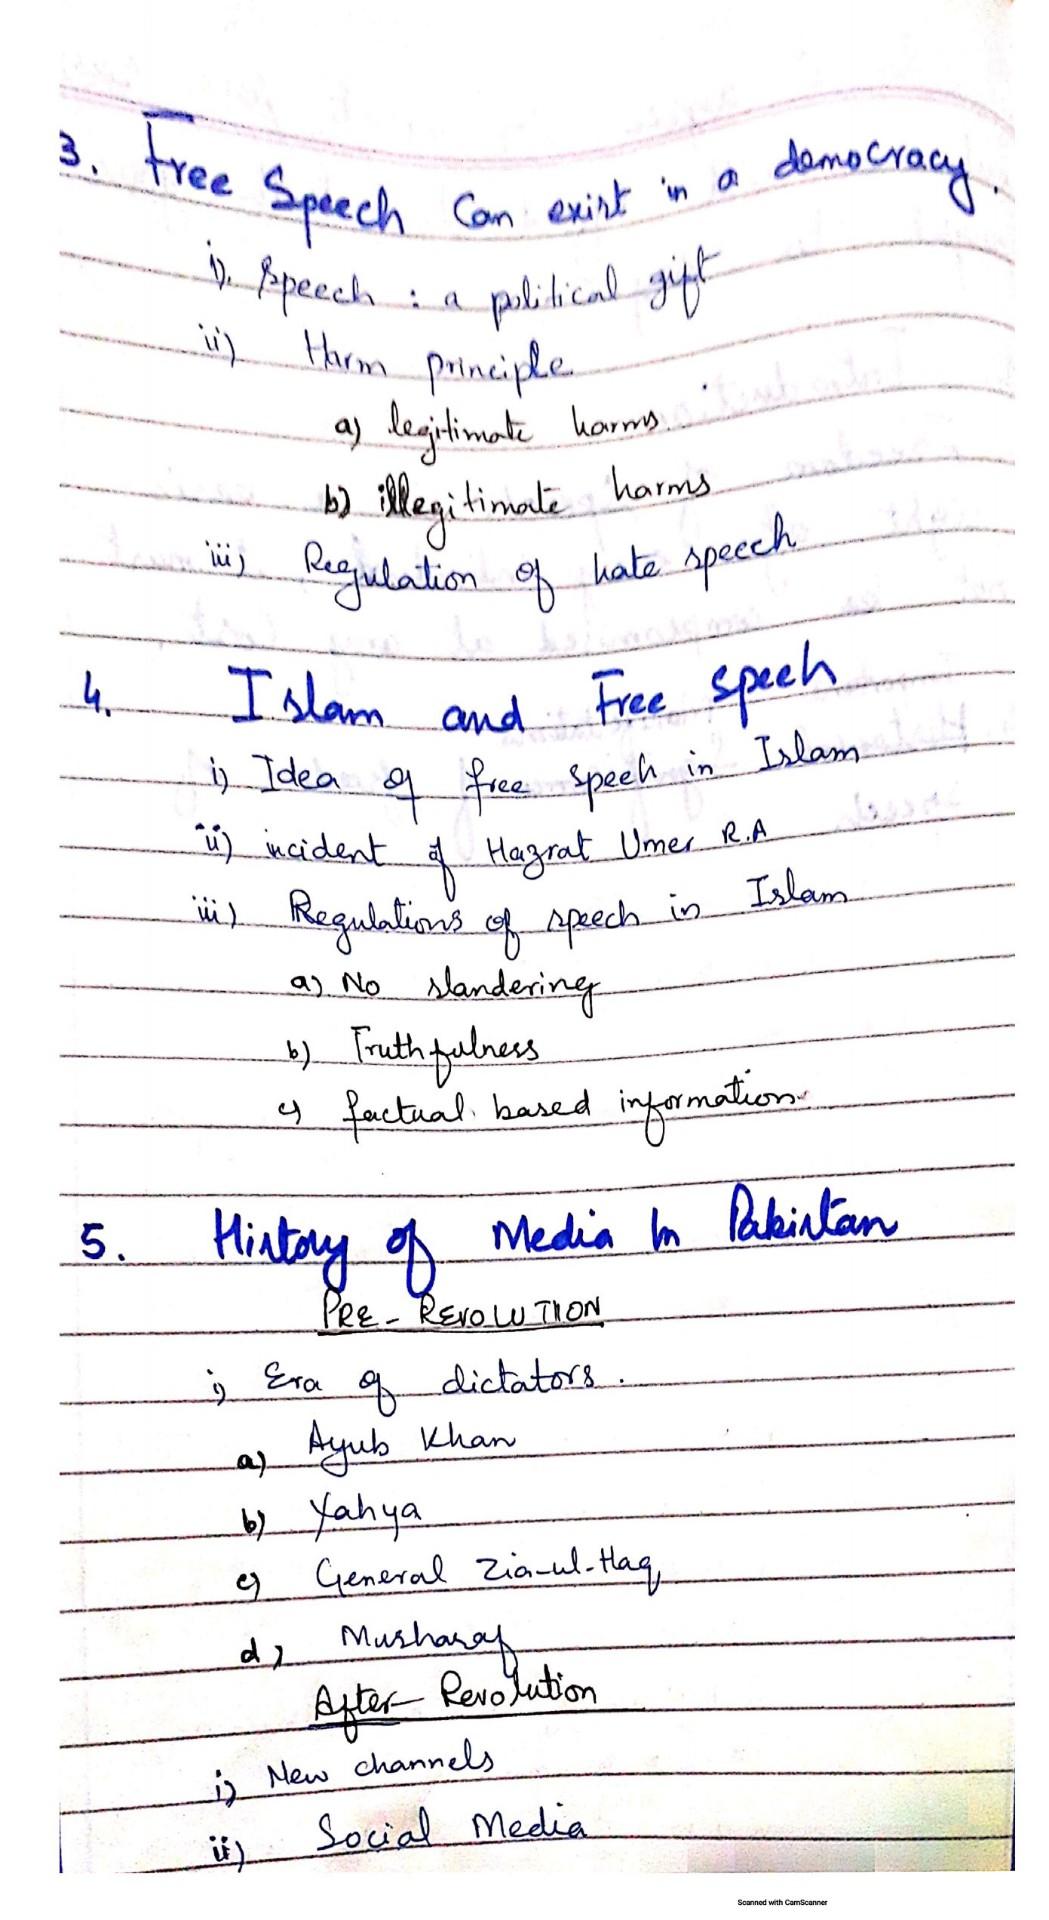 3. Free Speech Can exist in a democracy.
i). Speech : a political gift
ii) Harm principle
a) legitimate harms.
b) illegitimate harms
iii) Regulation of hate speech
4. Islam and Free speeh
i) Idea of free speeh in Islam
ii) incident of Hazrat Umer R.A
iii) Regulations of speech in Islam
a) No slandering
b) Truthfulness
c) factual based information.
5. History of Media In Pakistan
PRE - REVOLUTION
i) Era of dictators.
a) Ayub Khan
b) Yahya
c) General Zia-ul-Haq
d) Musharaf
After - Revolution
i) New channels
ii) Social Media
Scanned with CamScanner